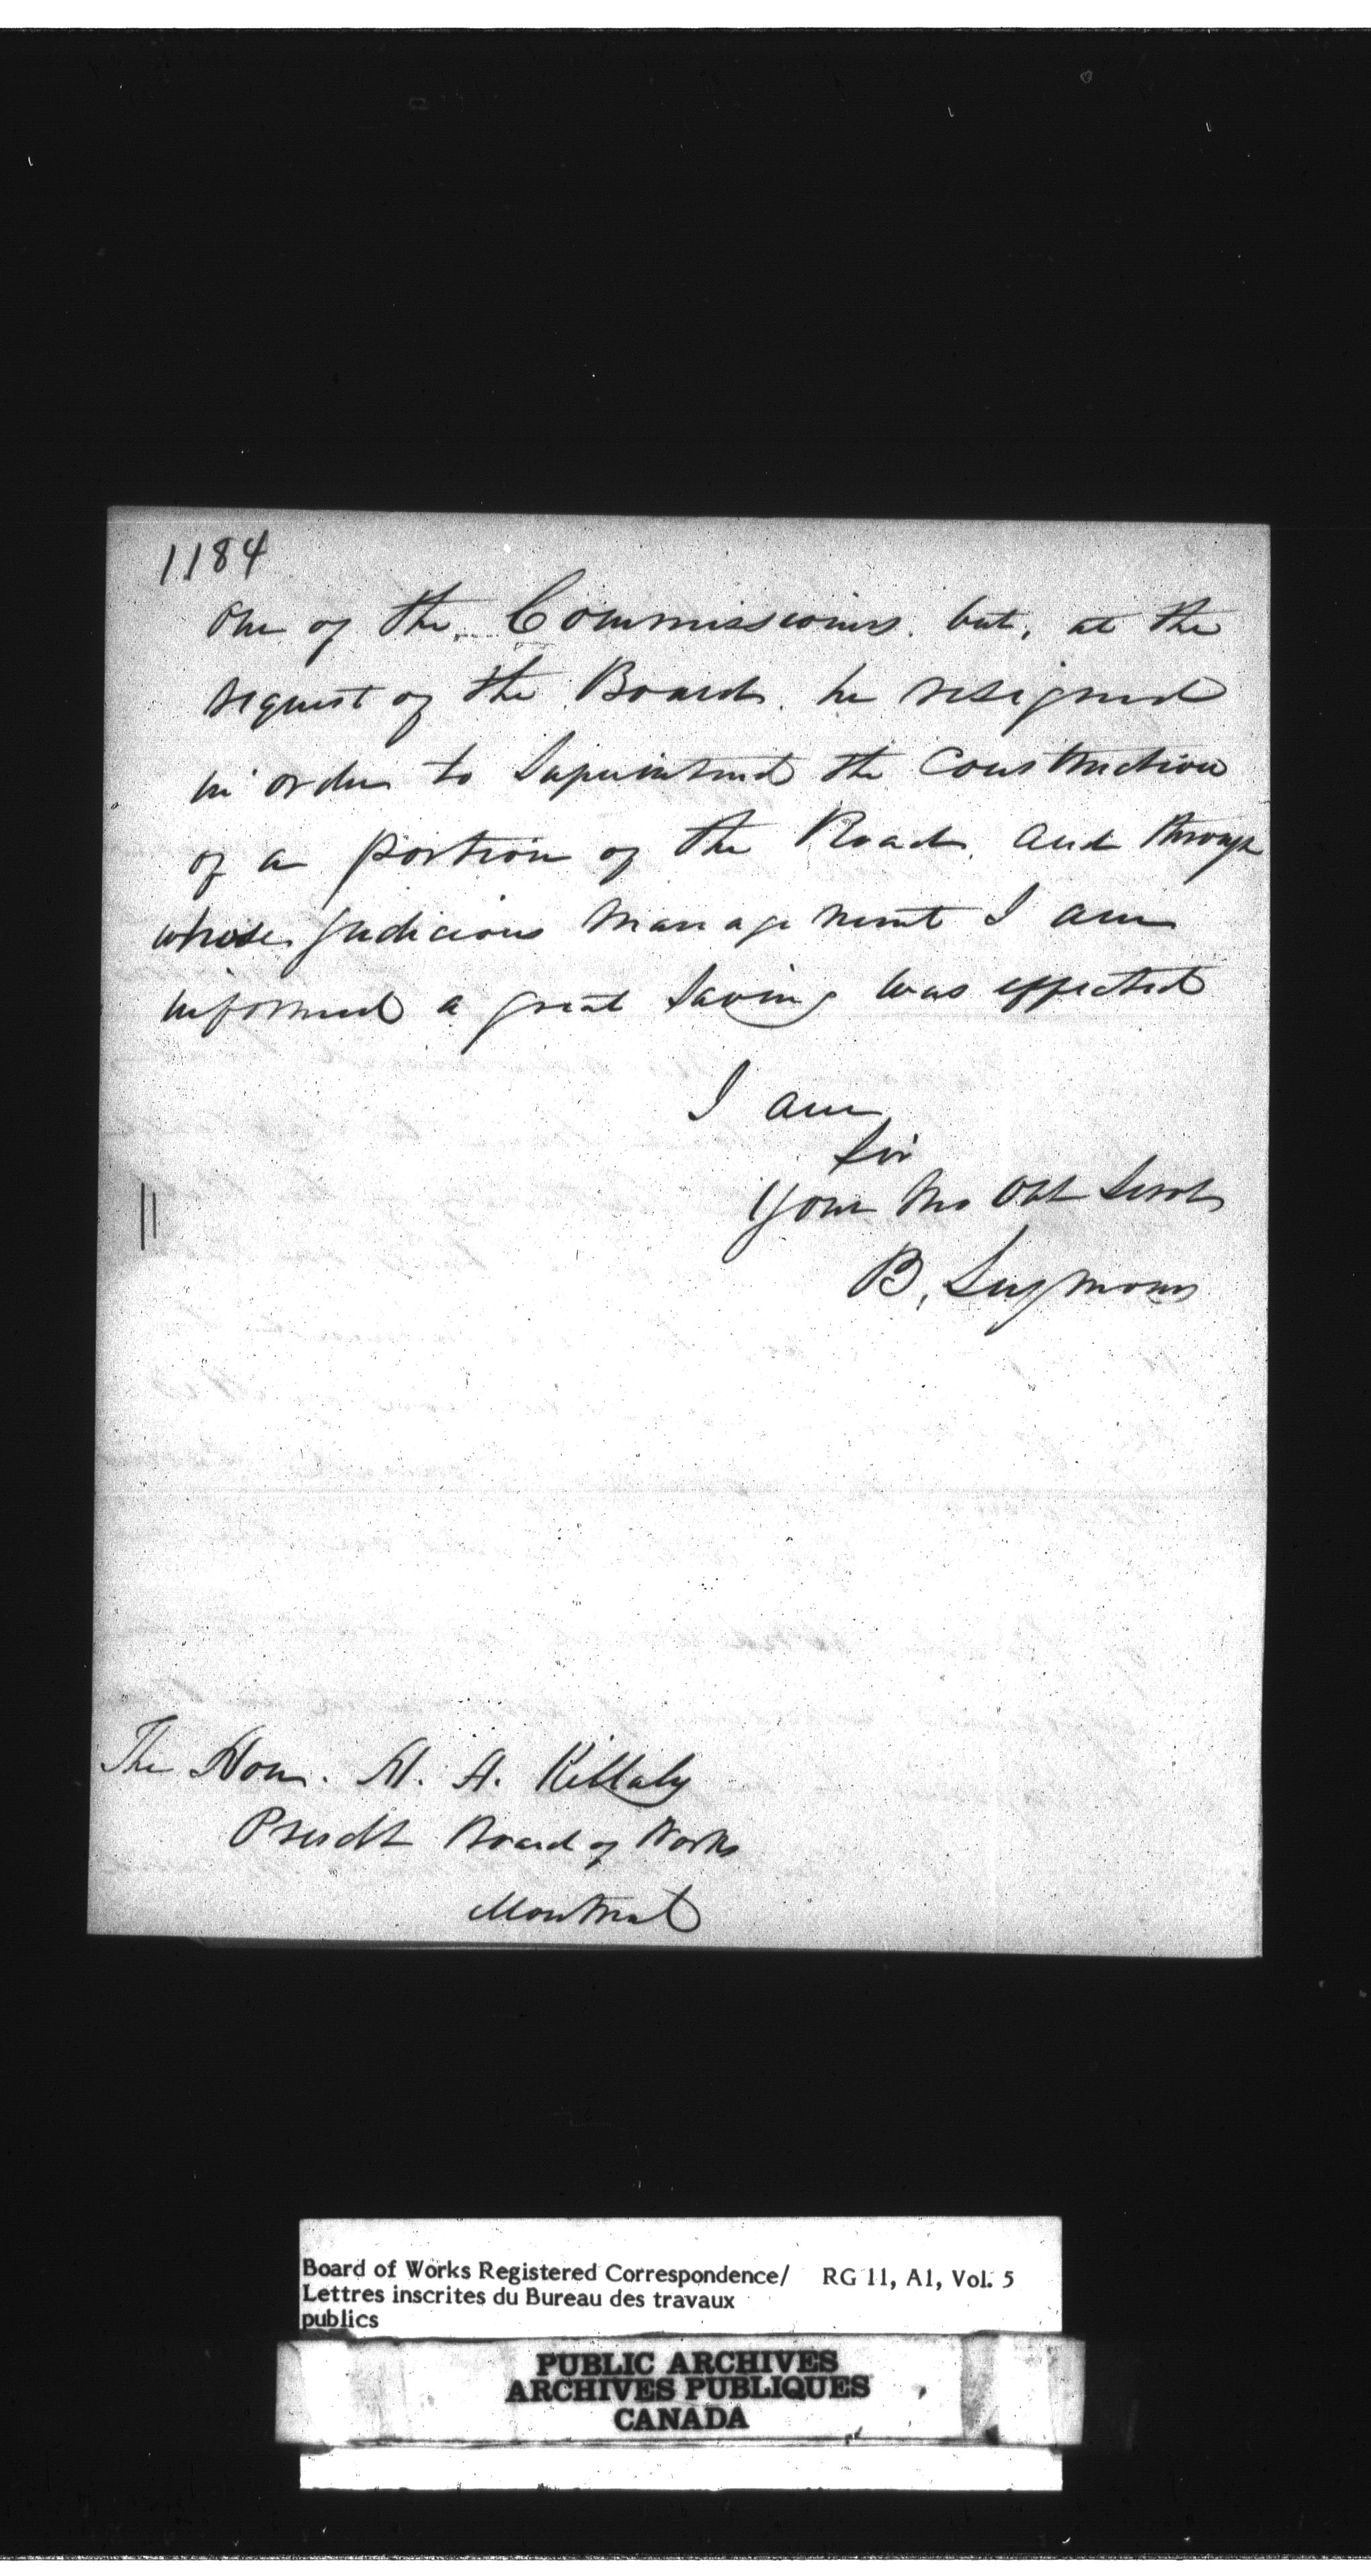 1184
One of the Commissioners. but, at the
request of the Board. he resigned
in order to Superintend the Construction
of a portion of the Road. and through
whose judicious management I am
informed a great saving was effected
I am
Sir
Your Mo Obt Servt
B. Seymour
The Hon. H. H. Killaly
Presdt Board of Works
Montreal
Board of Works Registered Correspondence/ RG 11, A1, Vol. 5
Lettres inscrites du Bureau des travaux
publics
PUBLIC ARCHIVES
ARCHIVES PUBLIQUES
CANADA